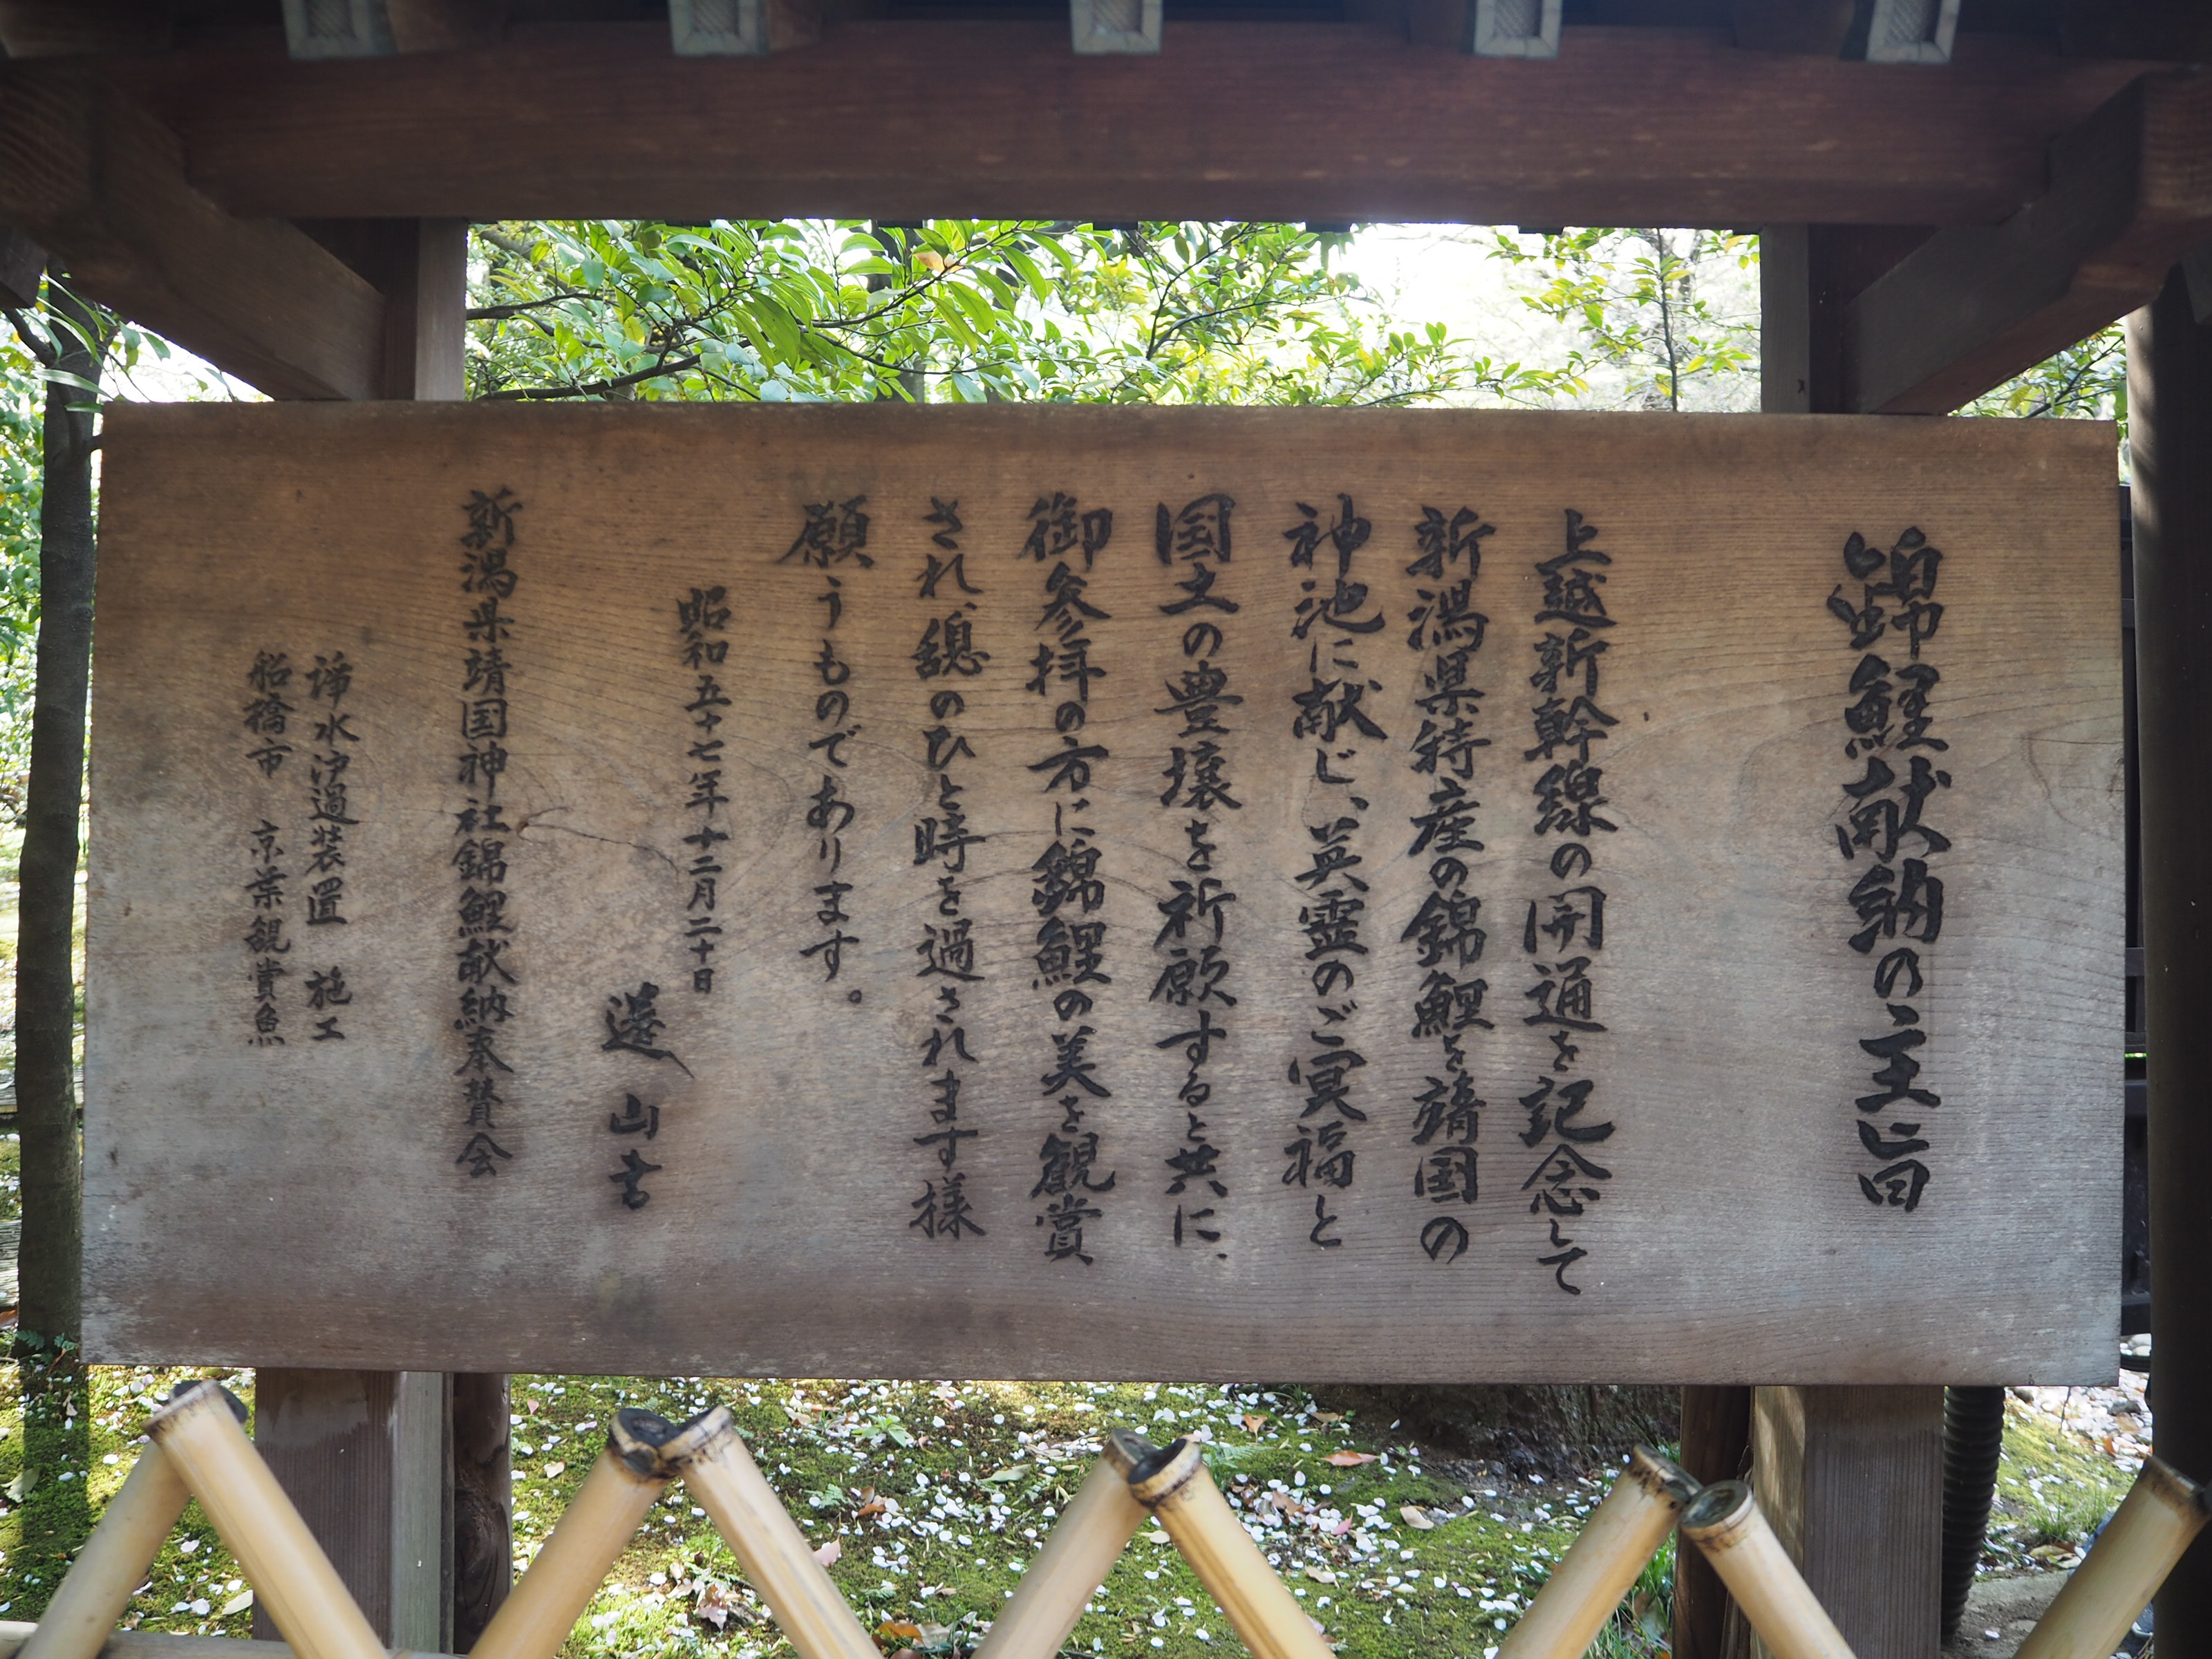 錦鯉献納の主旨
上越新幹線の開通を記念して
新潟県特産の錦鯉を靖国の
神池に献じ、英霊のご冥福と
国土の豊壌を祈願すると共に、
御参拝の方に錦鯉の美を観賞
され、憩のひと時を過されます様
願うものであります。
昭和五十七年十二月二十日
山書
新潟県靖国神社錦鯉献納奉賛会
浄水沪過装置 施工
船橋市 京葉観賞魚